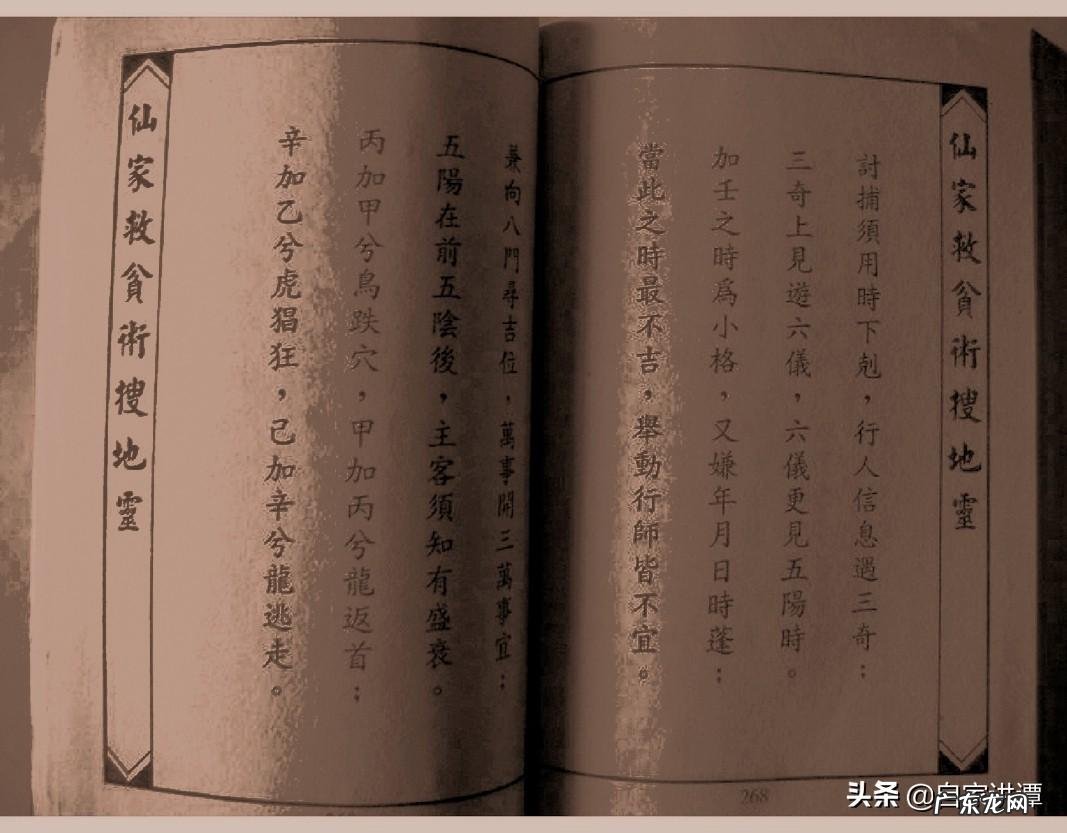 仙家救貧術搜地靈
討捕須用時下剋，行人信息遇三奇；
三奇上見遊六儀，六儀更見五陽時。
加壬之時為小格，又嫌年月日時蓬；
當此之時最不吉，舉動行師皆不宜。
268
兼向八門尋吉位，萬事開三萬事宜；
五陽在前五陰後，主客須知有盛衰。
丙加甲兮鳥跌穴，甲加丙兮龍返首；
辛加乙兮虎猖狂，己加辛兮龍逃走。
仙家救貧術搜地靈
头条
广东龙网